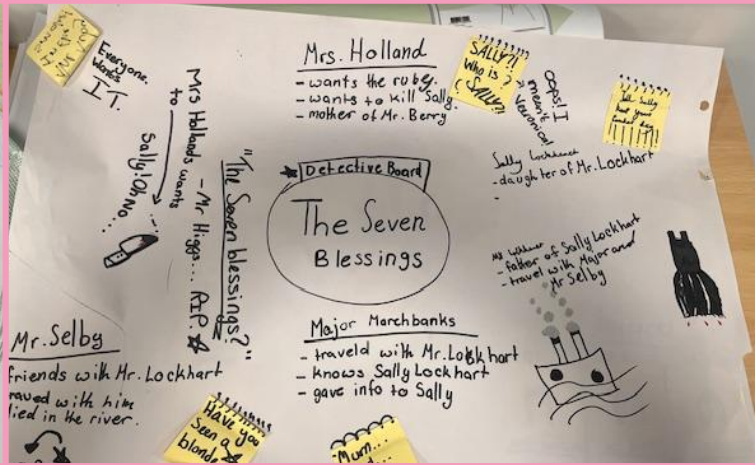 Everyone.
wants
IT.
Mrs Hollands wants
to
Sally! Oh No...
"The Seven blessings?"
- Mr Higgs... RIP.
Mrs. Holland
- wants the ruby.
- wants to kill Sally.
- mother of Mr. Berry
SALLY?!
Who is?
SALLY?!
oops! I
mean
Veronica!
Sally
Sally Lockheart
- daughter of Mr. Lockhart
-
Detective Board
The Seven
Blessings
- father of Sally Lockhart
- travel with Major and
Mr Selby
Major Marchbanks
- traveld with Mr. Lockhart
- knows Sally Lockhart
- gave info to Sally
Mr. Selby
friends with Mr. Lockhart
raved with him
died in the river.
Have you
seen a
blonde
Mum...